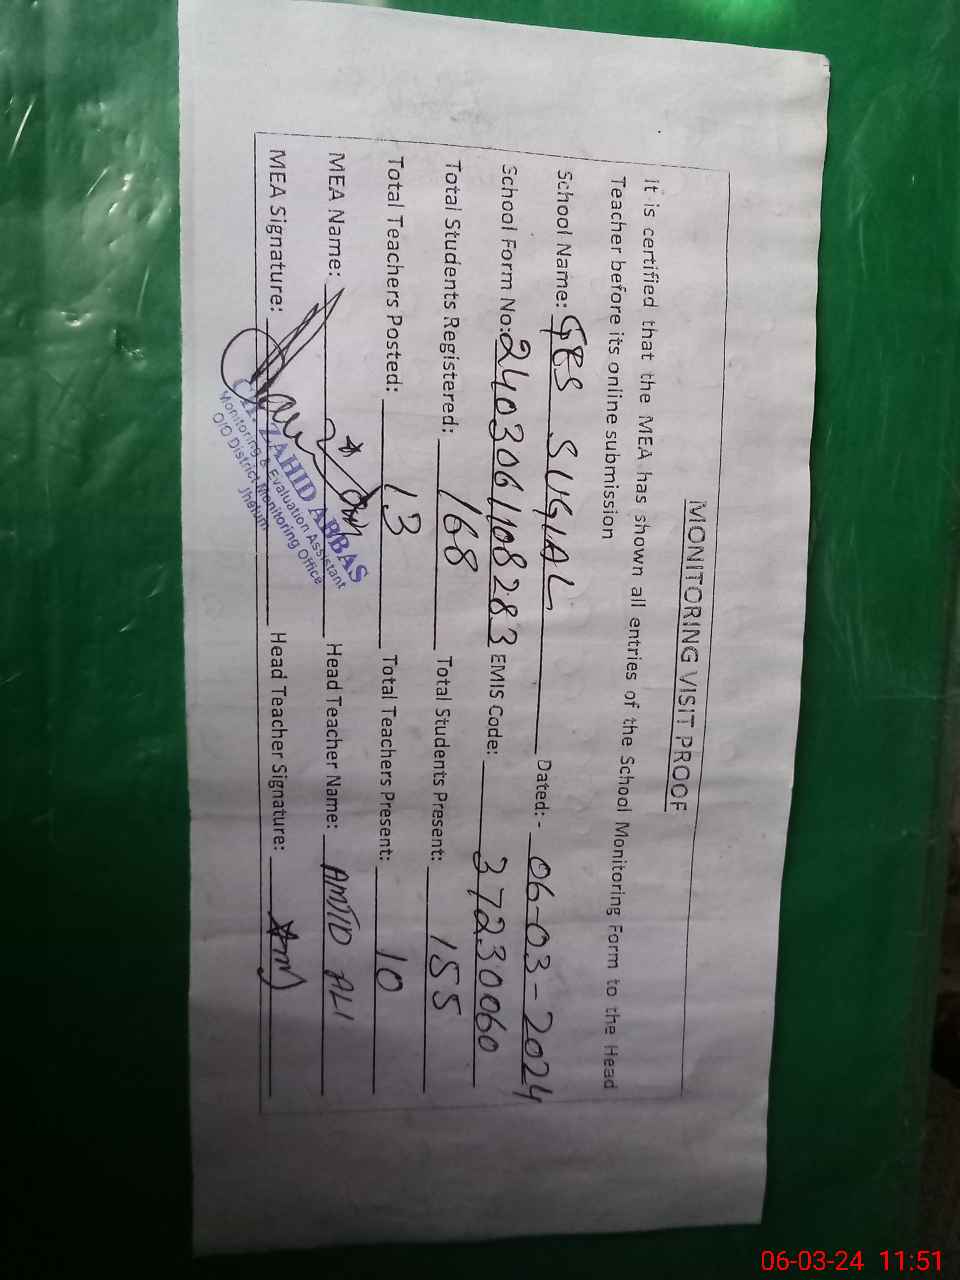 MONITORING VISIT PROOF
It is certified that the MEA has shown all entries of the School Monitoring Form to the Head
Teacher before its online submission
School Name: GBS SUGIAL Dated:- 06-03-2024
School Form No: 2403061108283 EMIS Code: 37230060
Total Students Registered: 168 Total Students Present: 155
Total Teachers Posted: 13 Total Teachers Present: 10
MEA Name: Head Teacher Name: AMJID ALI
MEA Signature: Head Teacher Signature:
CH. ZAHID ABBAS
Monitoring & Evaluation Assistant
O/O District Monitoring Office
Jhelum
06-03-24 11:51